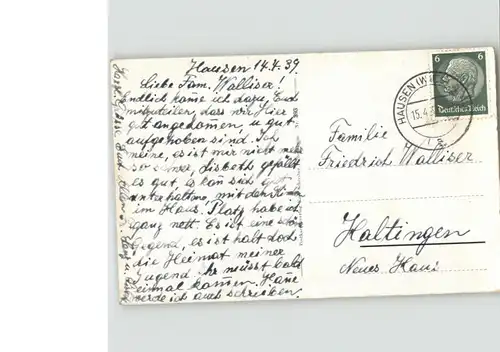 Hausen 14.4.39
Liebe Fam. Walliser!
Endlich komme ich dazu, Euch
mitzuteilen, dass wir hier
gut angekommen u. gut
aufgehoben sind. Ich
meine, es ist mir nicht mehr
so, Lisbeth gefällt
es gut, es kann sich gut
unterhalten, mit den
im Haus. Platz habe ich
ganz nett. Es ist eine schöne
Gegend, es ist halt doch
die Heimat meiner
Jugend. Ihr müsst bald
einmal kommen.
werde ich auch schreiben.
6 6
Deutsches Reich
HAUSEN
15.4.
Familie
Friedrich Walliser
Haltingen
Neues Haus